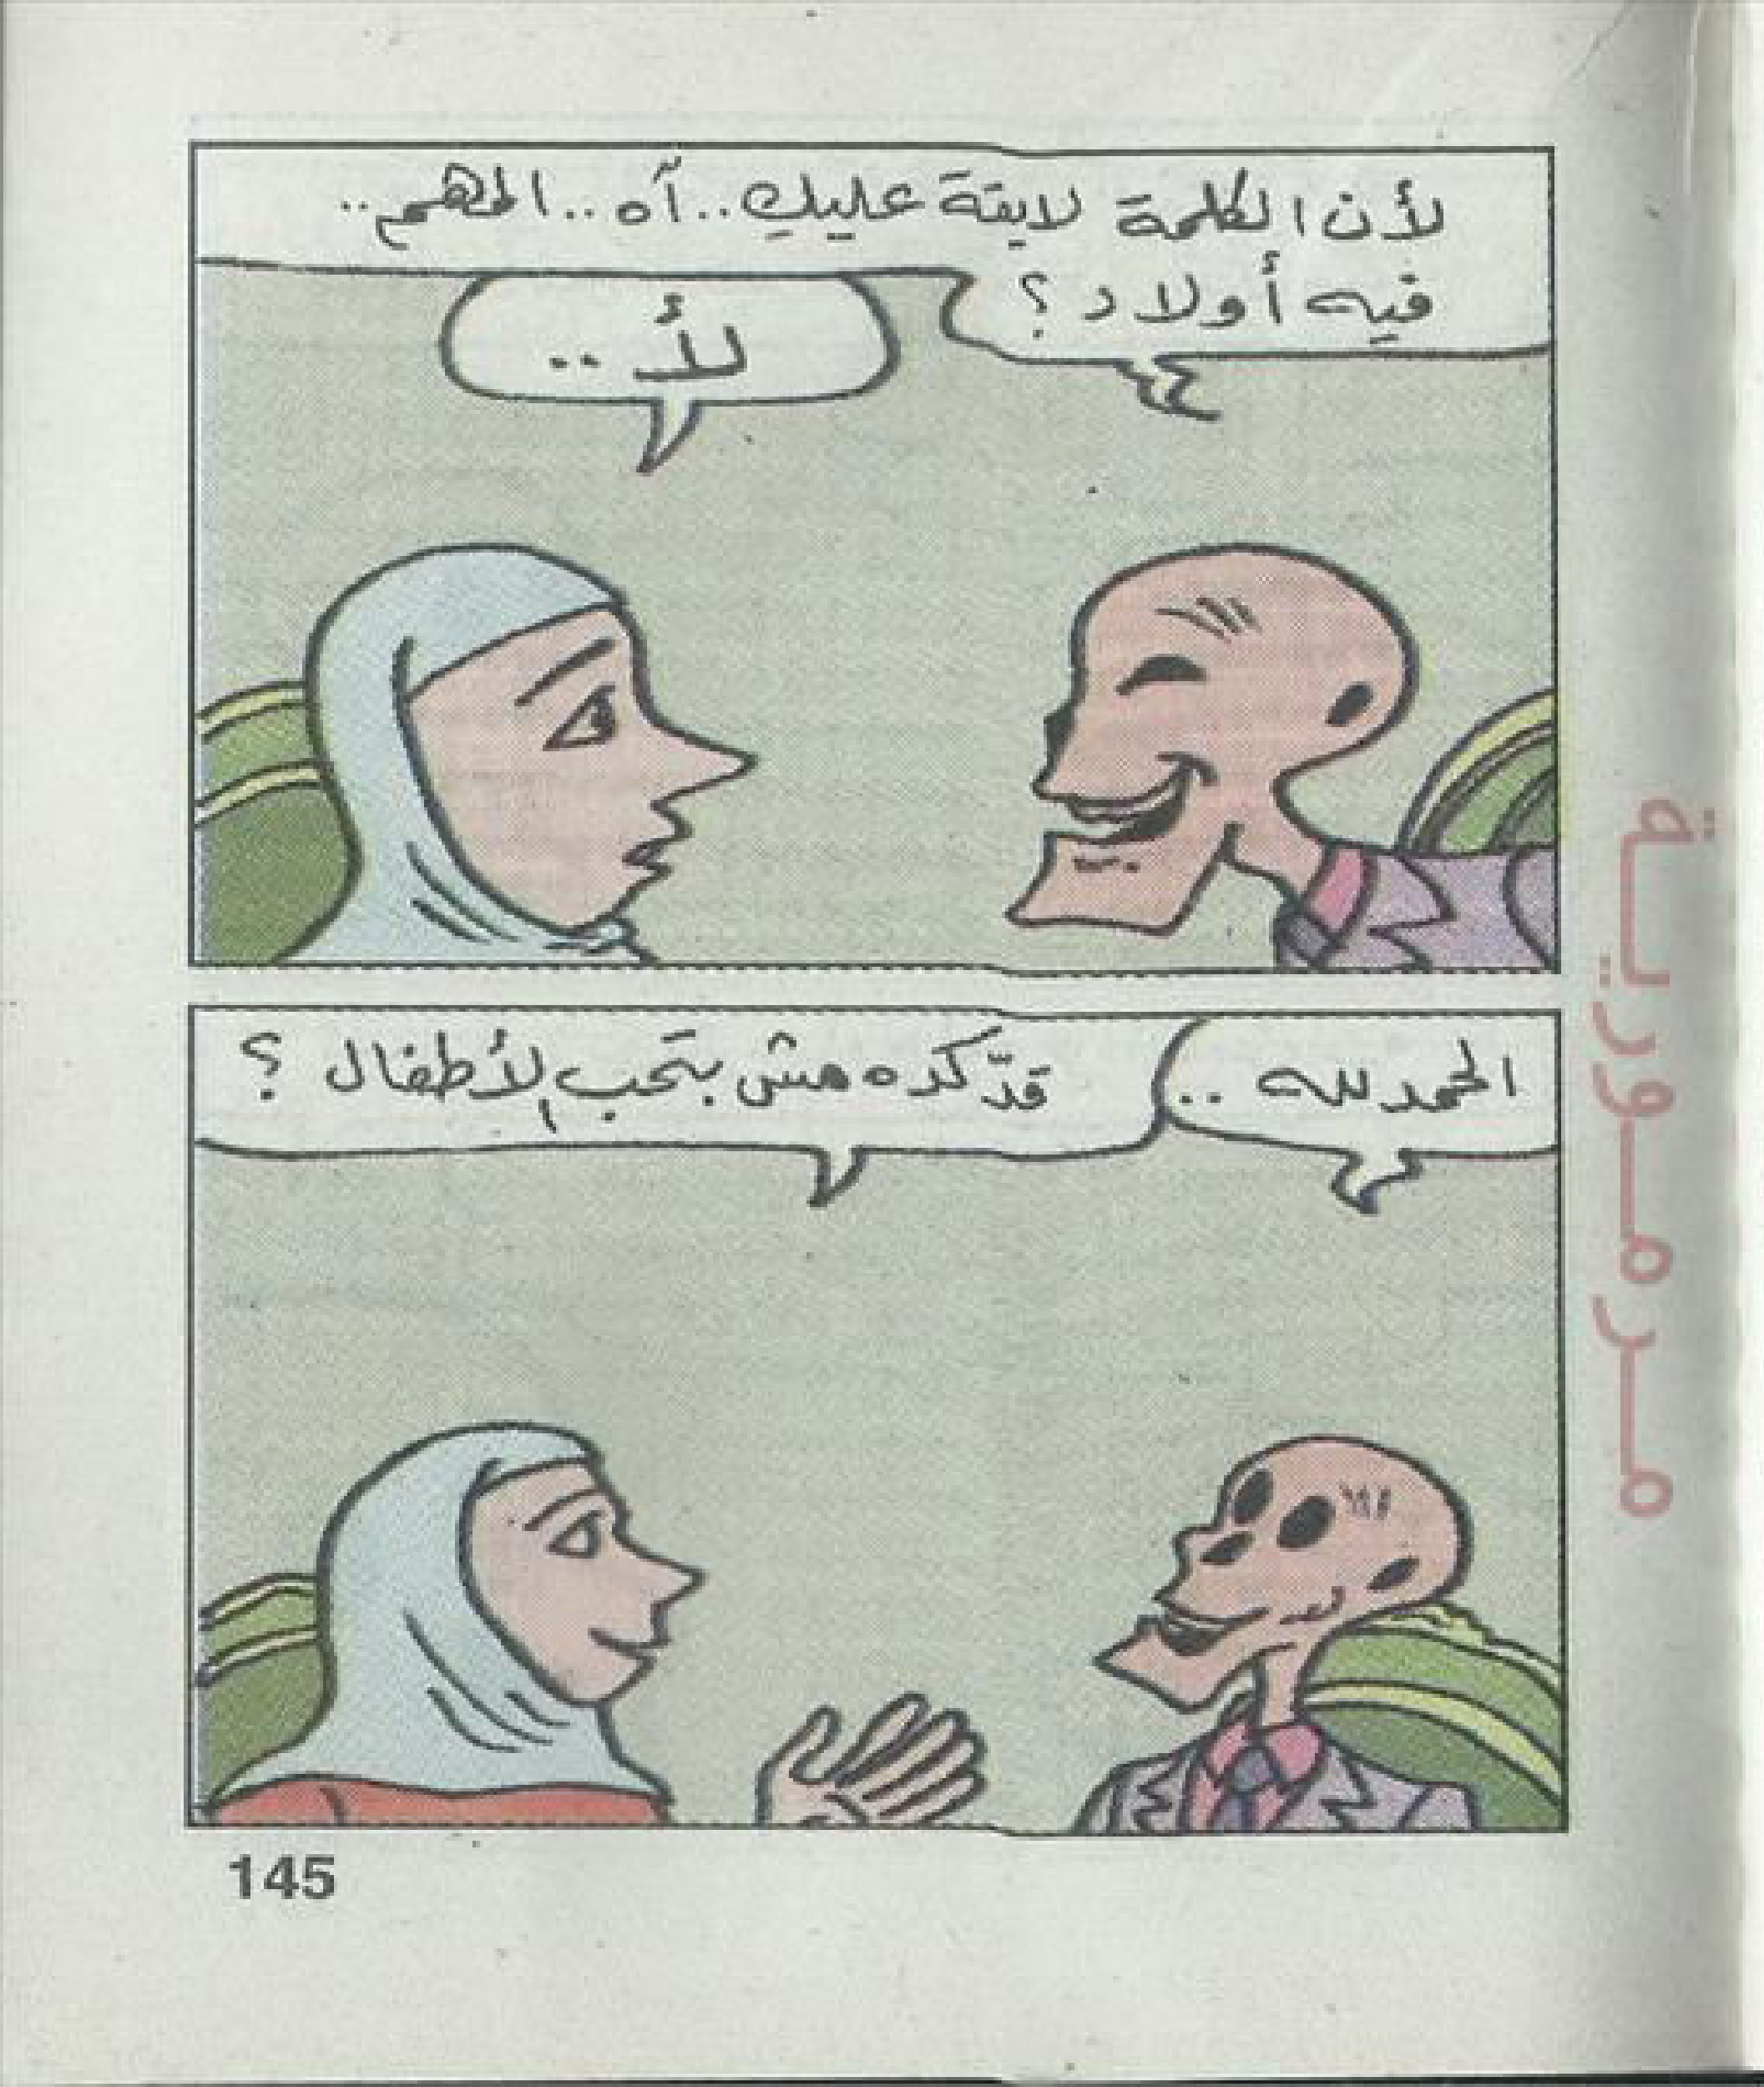 لأن الكلمة لايقة عليكِ.. آه.. المهم..
فيه أولاد؟
لأ..
الحمد لله..
قدّ كده مش بتحب الأطفال؟
145
مرمورية